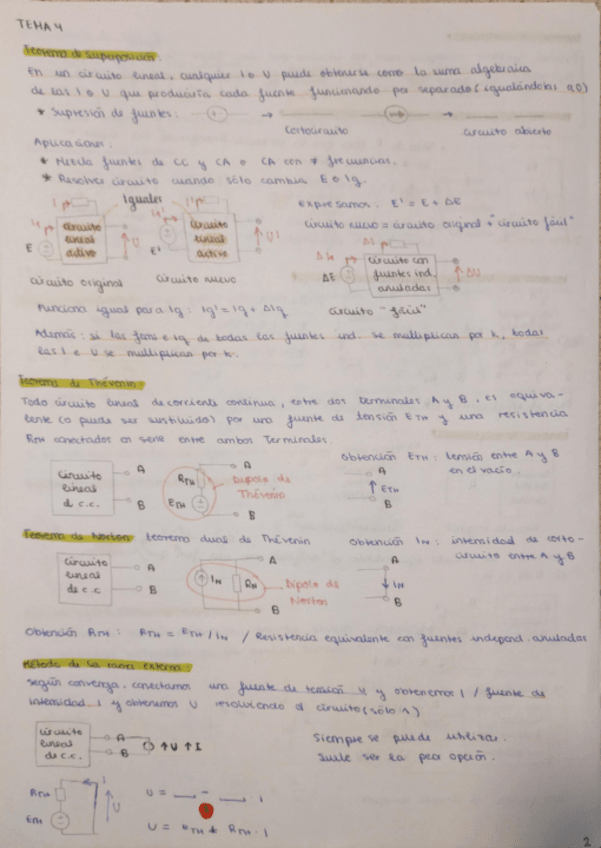 TEMA 4
Teorema de Superposición:
En un circuito lineal, cualquier I o U puede obtenerse como la suma algebraica
de las I o U que produciría cada fuente funcionando por separado (igualándolas a 0)
* Supresión de fuentes: → →
Cortocircuito circuito abierto
Aplicaciones:
* Mezcla fuentes de CC y CA o CA con ≠ frecuencias.
* Resolver circuito cuando sólo cambia E o Ig.
I Iguales I' expresamos: E' = E + ΔE
circuito nuevo = circuito original + "circuito fácil"
Ig circuito lineal activo U E
Ig' circuito lineal activo U' E'
ΔI ΔIg ΔE circuito con fuentes ind. anuladas ΔU
circuito original circuito nuevo circuito "fácil"
Funciona igual para Ig: Ig' = Ig + ΔIg
Además: si las fems e Ig de todas las fuentes ind. se multiplican por k, todas
las I e U se multiplican por k.
Teorema de Thévenin
Todo circuito lineal de corriente continua, entre dos terminales A y B, es equiva-
lente (o puede ser sustituido) por una fuente de tensión ETH y una resistencia
RTH conectados en serie entre ambos Terminales.
Obtención ETH: tensión entre A y B
en el vacío.
circuito lineal de c.c. A B
RTH ETH A B Dipolo de Thévenin
A ETH B
Teorema de Norton teorema dual de Thévenin Obtención IN: intensidad de corto-
circuito entre A y B
circuito lineal de c.c A B
IN RN A B Dipolo de Norton
A IN B
Obtención RTH: RTH = ETH / IN / Resistencia equivalente con fuentes independ. anuladas
Método de la rama externa:
según convenga, conectamos una fuente de tensión U y obtenemos I / fuente de
intensidad I y obtenemos U resolviendo el circuito (sólo 1)
circuito lineal de c.c. A B U I
Siempre se puede utilizar.
Suele ser la peor opción.
RTH ETH I U
U = __ - __ · I
U = ETH ± RTH · I
2